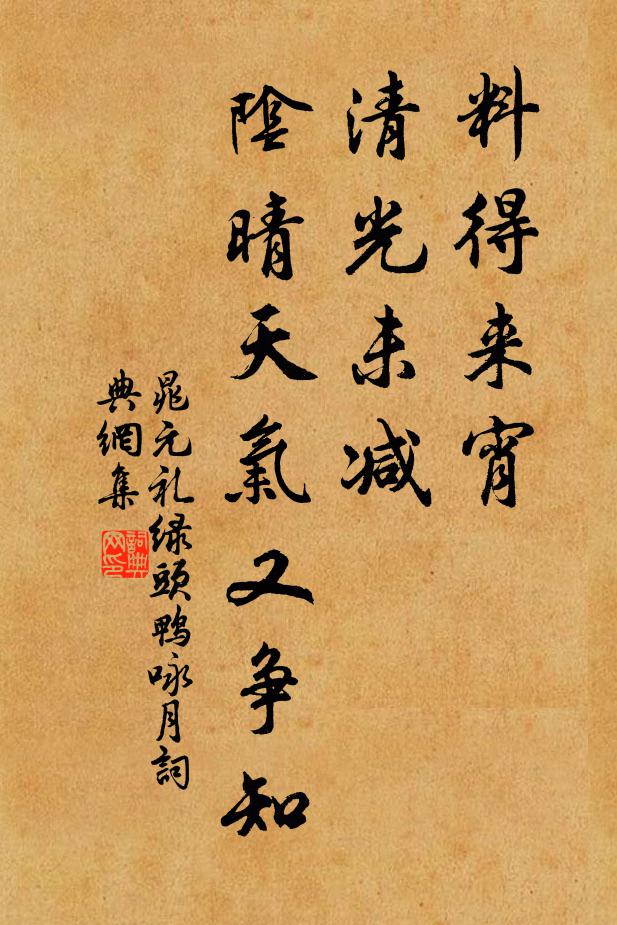 料得来宵
清光未减
陰晴天氣又争知
晁元礼绿頭鴨咏月詞
典網集
詞典
网印